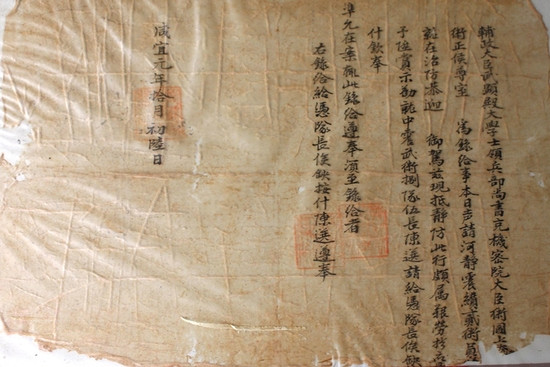 輔政大臣武顯殿大學士領兵部尚書充機密院大臣衛國公
衛正侯尊室 為錄給事本日步請河靜震絹武衛員
竊在治防恭迎 御駕茲現抵靜防此行頗屬艱勞
予陞賞示勸就中震武衛捌隊伍長陳選請給憑隊長侯缺
什欽奉
準允在案輒此錄給遵奉須至錄給者
右錄給給憑隊長侯缺按什陳選遵奉
咸宜元年拾月初陸日